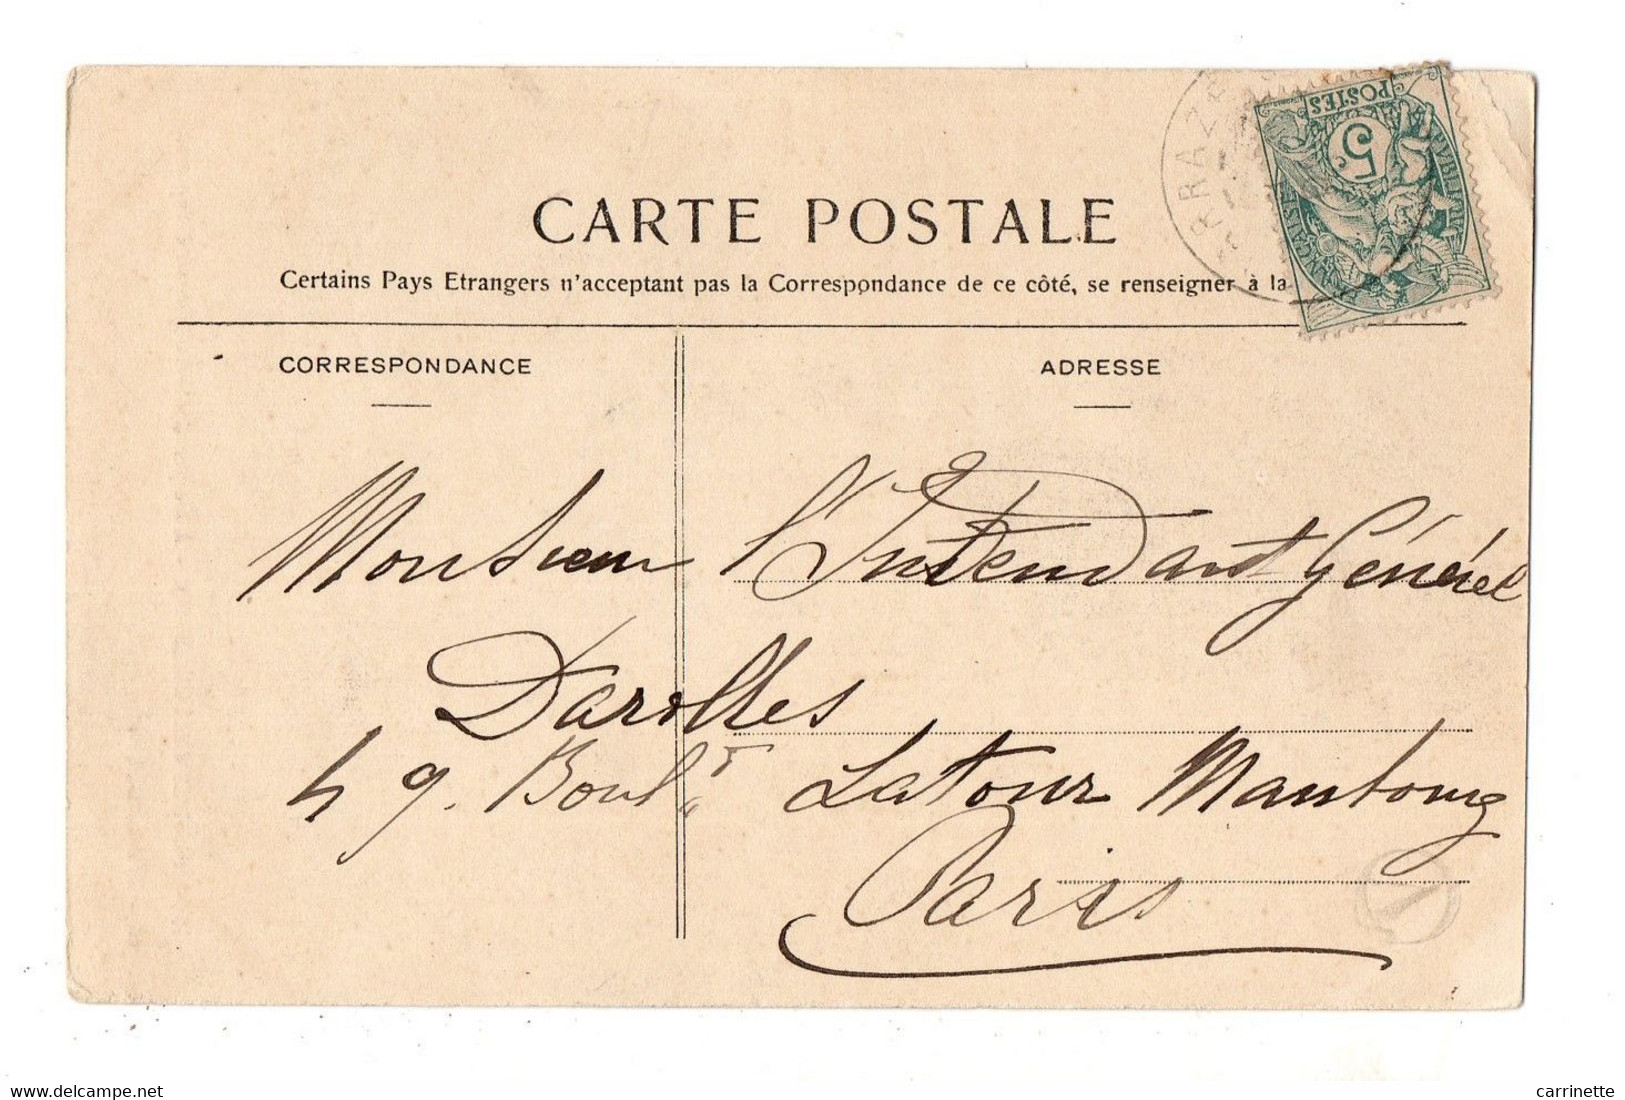 CARTE POSTALE
Certains Pays Etrangers n'acceptant pas la Correspondance de ce côté, se renseigner à la
CORRESPONDANCE
ADRESSE
POSTES
5c
Monsieur l'Intendant Général
Darolles
49. Boul.d Latour Maubourg
Paris
delcampe.net
carrinette